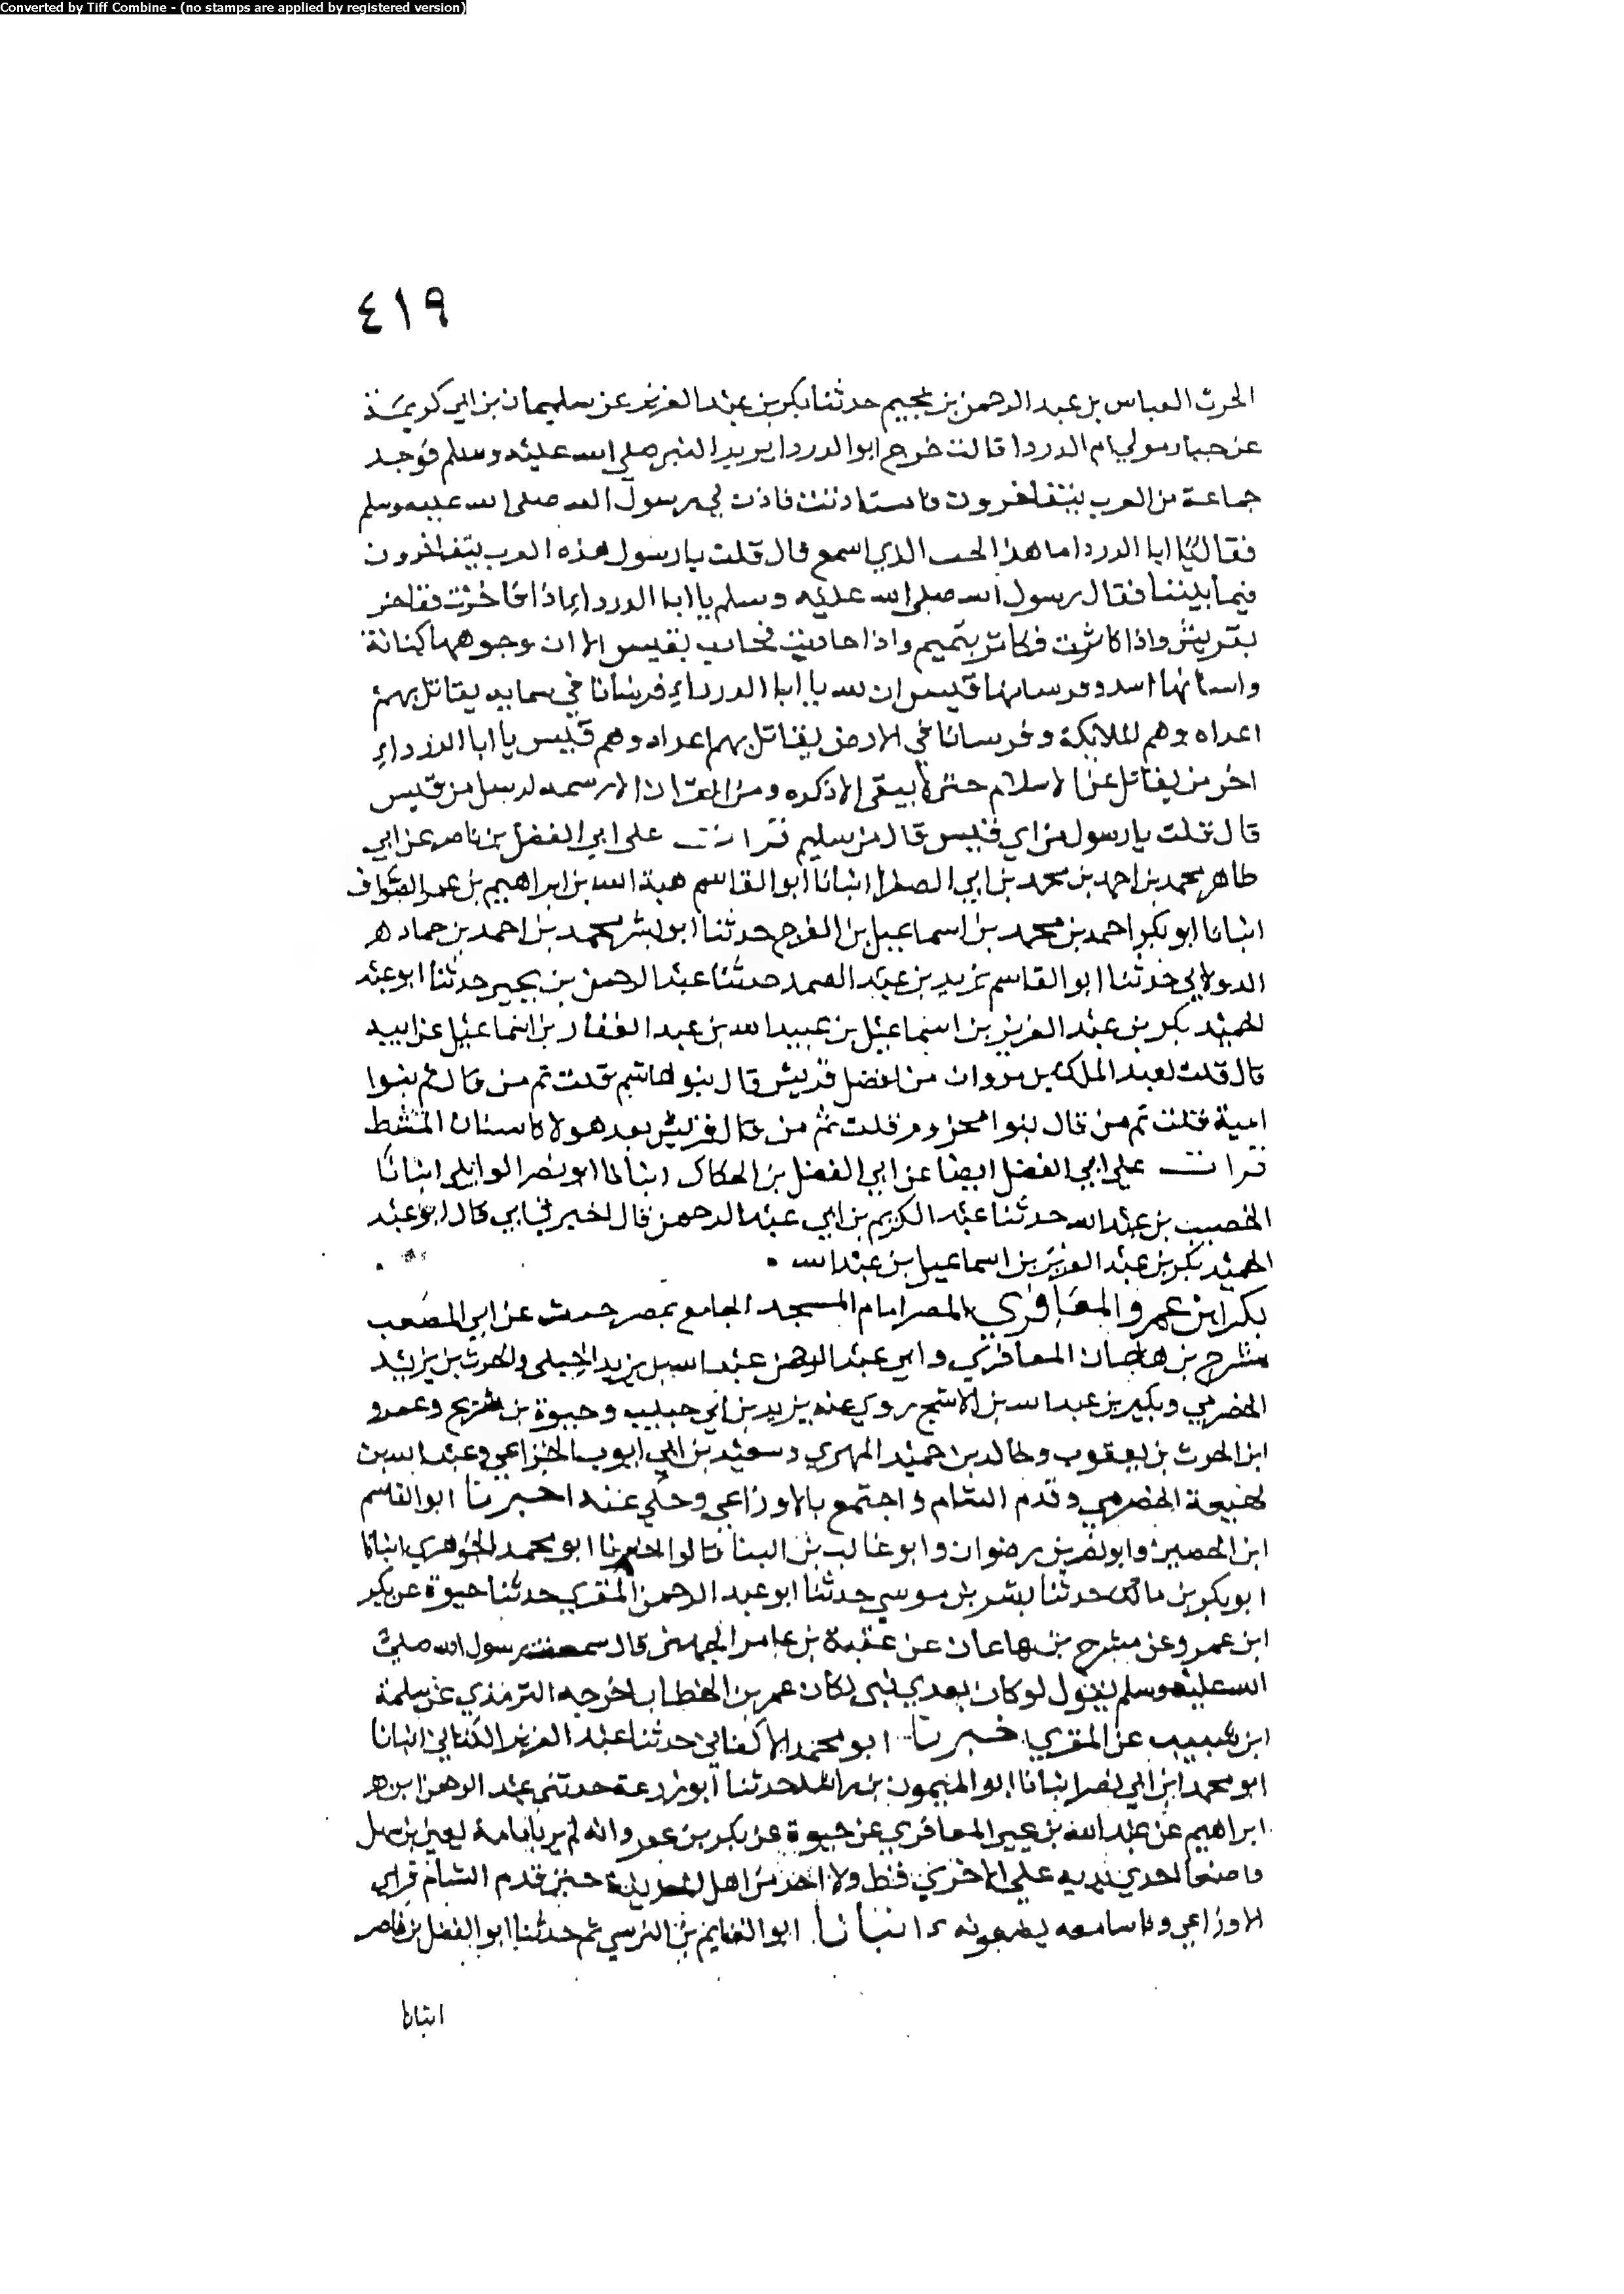 Converted by Tiff Combine - (no stamps are applied by registered version)
٤١٩
الحرث العباس بن عبد الرحمن بن نجيم حدثنا بكر بن عبد العزيز عن سليمان بن ابي كريمة
عن حبار مولي ام الدردا قالت خرج ابو الدردا يريد النبي صلى الله عليه وسلم فوجد
جماعة من العرب يتفاخرون فاستاذنت فاذن لي رسول الله صلى الله عليه وسلم
فقال يا ابا الدردا ما هذا اللجب الذي اسمع قال قلت يا رسول هذه العرب يتفاخرون
فيما بيننا فقال رسول الله صلى الله عليه وسلم يا ابا الدرداء اذا فاخرت ففاخر
بقريش واذا كاثرت فكاثر بتميم واذا حاربت فحارب بقيس الا ان وجوهها كنانة
ولسانها اسد وفرسانها قيس ان لله يا ابا الدرداء فرسانا في سمايه يقاتل بهم
اعداه وهم الملايكة وفرسانا في الارض يقاتل بهم اعداه وهم قيس يا ابا الدرداء
اخر من يقاتل عن الاسلام حتى لا يبقى الا ذكره ومن القران الا رسمه لرجل من قيس
قال قلت يا رسول من اي قيس قال من سليم قرات على ابي الفضل بن ناصر عن ابي
طاهر محمد بن احمد بن محمد بن ابي الصقر انبانا ابو القاسم هبة الله بن ابراهيم بن عمر الصواف
انبانا ابو بكر احمد بن محمد بن اسماعيل بن الفرج حدثنا ابو بشر محمد بن احمد بن حماد
الدولابي حدثنا ابو القاسم يزيد بن عبد الصمد حدثنا عبد الرحمن بن يحيى حدثنا ابو عبد
الحميد بكر بن عبد العزيز بن اسماعيل بن عبيد الله بن عبد الغفار بن اسماعيل عن ابيه
قال قلت لعبد الملك بن مروان من افضل قريش قال بنو هاشم قلت ثم من قال ثم بنوا
امية قلت ثم من قال بنوا مخزوم قلت ثم من قال قريش بعد هولا كاسنان المشط
قرات على ابي الفضل ايضا عن ابي الفضل بن الحكاك انبانا ابو نصر الوايلي انبانا
الخصيب بن عبد الله حدثنا عبد الكريم بن ابي عبد الرحمن قال اخبرني ابي قال ابو عبد
الحميد بكر بن عبد العزيز بن اسماعيل بن عبد الله
بكر ابن عمرو المعافري المصر امام المسجد الجامع بمصر حدث عن ابي المصعب
مشرح بن هاعان المعافري وابي عبد الرحمن عبد الله بن يزيد الحبلي والحرث بن يزيد
الحضرمي وبكير بن عبد الله بن الاشج روي عنه يزيد بن ابي حبيب وحيوة بن شريح وعمرو
ابن الحرث بن يعقوب وخالد بن حميد المهري وسعيد بن ابي ايوب الخزاعي وعبد الله بن
لهيعة الحضرمي وقدم الشام واجتمع بالاوزاعي وحكي عنه اخبرنا ابو القاسم
ابن الحصين وابو نصر بن رضوان وابو غالب بن البنا قالوا اخبرنا ابو محمد الجوهري انبانا
ابو بكر بن مالك حدثنا بشر بن موسي حدثنا ابو عبد الرحمن المقري حدثنا حيوة عن بكر
ابن عمرو عن مشرح بن هاعان عن عقبة بن عامر الجهني قال سمعت رسول الله صلى
الله عليه وسلم يقول لو كان بعدي نبى لكان عمر بن الخطاب اخرجه الترمذي عن سلمة
ابن شبيب عن المقري خبرنا ابو محمد الاكفاني حدثنا عبد العزيز الكتاني انبانا
ابو محمد ابن ابي نصر انبانا ابو الميمون بن راشد حدثنا ابو زرعة حدثني عبد الرحمن ابن
ابراهيم عن عبد الله بن يحيى المعافري عن حيوة عن بكر بن عمرو انه لم ير ابا امامة يعني بن سهل
واضعا احدي يديه على الاخري قط ولا احد من اهل المدينة حتى قدم الشام فراى
الاوزاعي وناسا معه يضعونه انبانا ابو الغنايم بن النرسي ثم حدثنا ابو الفضل بن ناصر
انبانا